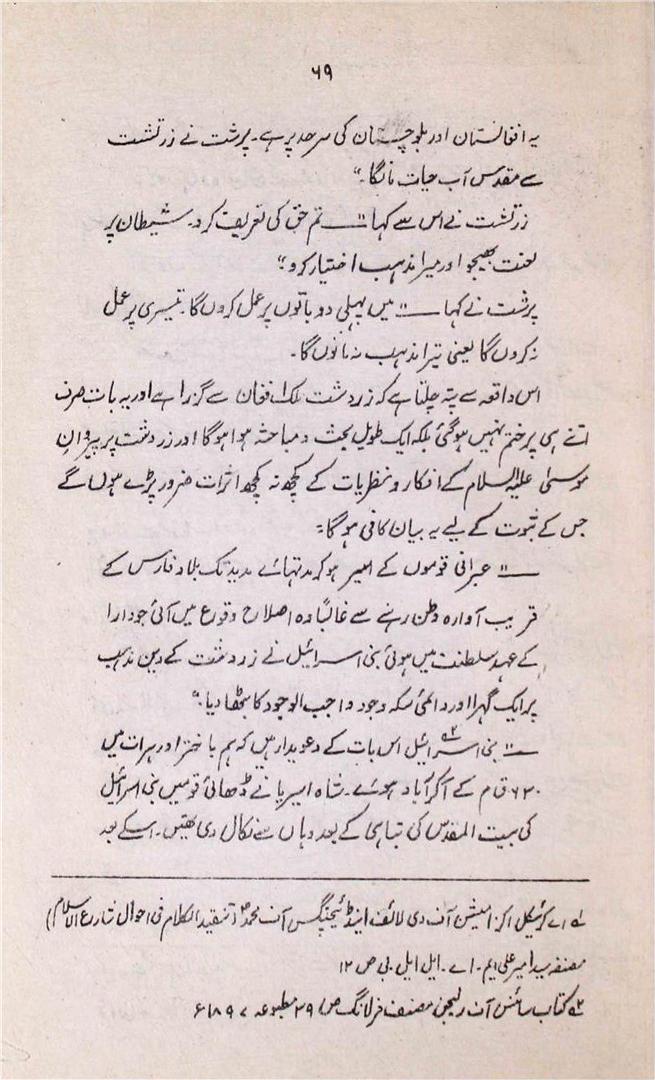 ۶۹
یہ افغانستان اور بلوچستان کی سرحد پر ہے۔ پرشت نے زرتشت
سے مقدس آب حیات مانگا۔"
زرتشت نے اس سے کہا "— تم حق کی تعریف کرو۔ شیطان پر
لعنت بھیجو اور میرا مذہب اختیار کرو"
پرشت نے کہا —" میں پہلی دو باتوں پر عمل کروں گا۔ تیسری پر عمل
نہ کروں گا یعنی تیرا مذہب نہ مانوں گا۔
اس واقعہ سے پتہ چلتا ہے کہ زردشت ملک افغان سے گزرا ہے اور یہ بات صرف
اتنے ہی پر ختم نہیں ہوگئی بلکہ ایک طویل بحث و مباحثہ ہوا ہوگا اور زردشت پر پیروانِ
موسیٰ علیہ السلام کے افکار و نظریات کے کچھ نہ کچھ اثرات ضرور پڑے ہوں گے
جس کے ثبوت کے لیے یہ بیان کافی ہوگا:
—" عبرانی قوموں کے اسیر ہو کر مدتہائے مدید تک بلاد فارس کے
قریب آوارہ وطن رہنے سے غالباً وہ اصلاح وقوع میں آئی جو دارا
کے عہد سلطنت میں ہوئی بنی اسرائیل نے زردشت کے دین مذہب
پر ایک گہرا اور دائمی سکہ وجود واجب الوجود کا بٹھا دیا۔"
—" بنی اسرائیل۲ اس بات کے دعویدار ہیں کہ ہم باختر اور ہرات میں
۶۲۰ ق م کے آکر آباد ہوئے۔ شاہ اسیریا نے ڈھائی قومیں بنی اسرائیل
کی بیت المقدس کی تباہی کے بعد وہاں سے نکال دی تھیں۔ اسکے بعد
۱ اے کریٹیکل اگزامنیشن آف دی لائف اینڈ ٹیچنگس آف محمدؐ (تنقید الکلام فی احوال شارع الاسلام)
مصنفہ سید امیر علی ایم۔ اے۔ ایل ایل۔ بی ص ۱۲
۲ کتاب سائنس آف ریلیجن مصنف فرلانگ ص ۲۹ مطبوعہ ۱۸۹۷ء